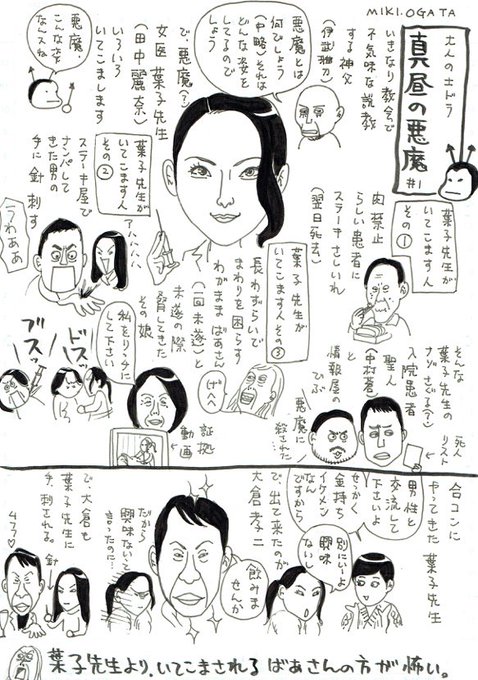 MIKI.OGATA
大人の土ドラ
真昼の悪魔
#1
いきなり教会で
不気味な説教
する神父
(伊武雅刀)
悪魔とは
何びしょう
(中略)それは
どんな姿を
してるので
しょう
で、悪魔(?)
女医 葉子先生
(田中麗奈)
いろいろ
いてこまします
悪魔、
こんなんよ
なんなん
葉子先生が
いてこます人
その①
肉禁止
らしい患者に
ステーキさしいれ
(翌日死去)
葉子先生が
いてこます人
その②
ステーキ屋で
ナンパして
きた男の
手に針刺す
アハハハハ
うわああ
葉子先生が
いてこます人その③
長わずらいで
まわりを困らす
わがままばあさん
(一回未遂)と
未遂の際
脅してきた
その娘
げへへ
私をリンチに
して下さい
ドスッ
ブスッ
証拠
動画
そんな
葉子先生の
ナゾをさぐる(?)
入院患者
聖人
(中村蒼)
と
情報屋の
ひぶ
悪魔に
殺された
死人
リスト
合コンに
やってきた 葉子先生
男性と
交流して
下さいよ
せっかく
金持ち
イケメン
なん
ですから
別にいーよ
興味
ないし
で、出て来たのが
大倉孝二
飲みま
せんか
だから
興味ないて
言ったのに…
で、大倉も
葉子先生に
手、刺される。
針
葉子先生より、いてこまされるばあさんの方が怖い。